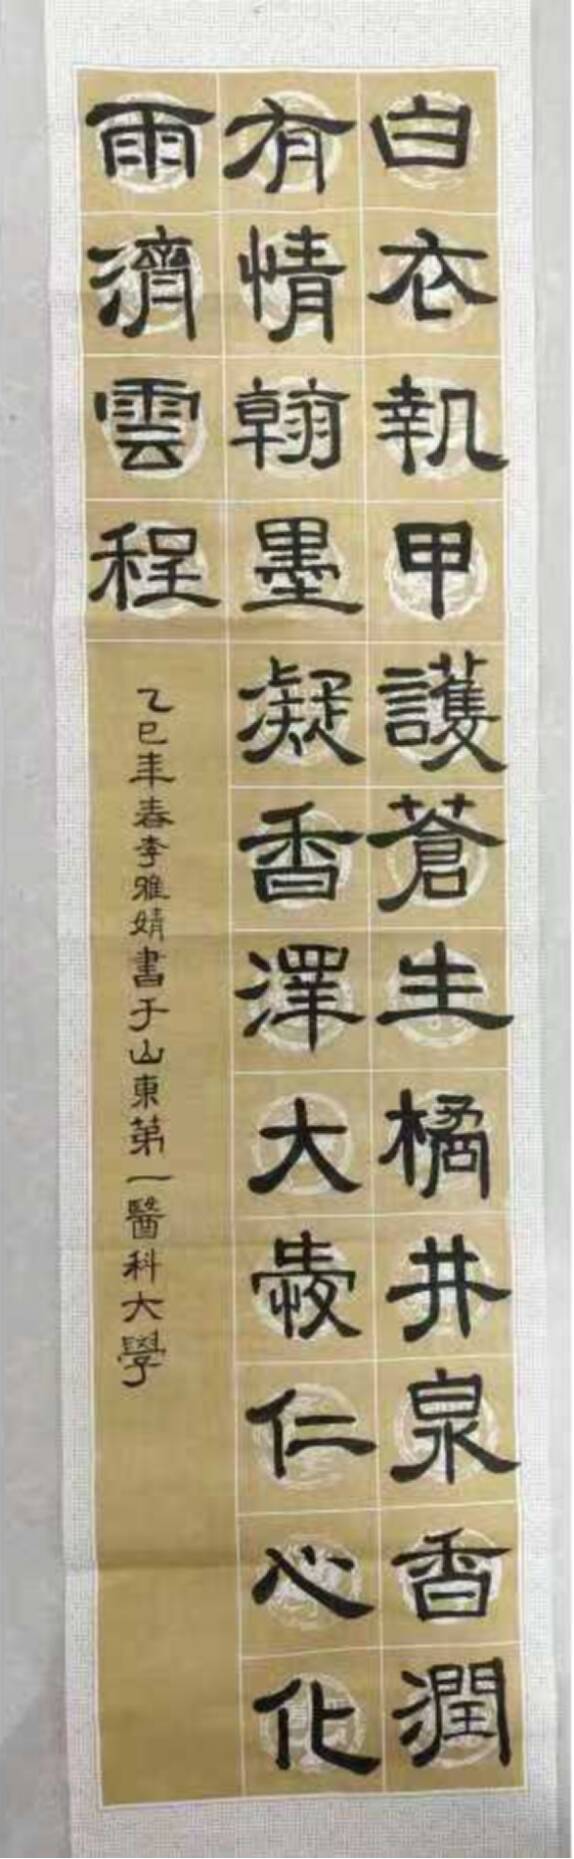 白衣執甲護蒼生橘井泉香潤
有情翰墨凝香澤大愛仁心化
雨濟雲程
乙巳年春李雅婧書于山東第一醫科大學